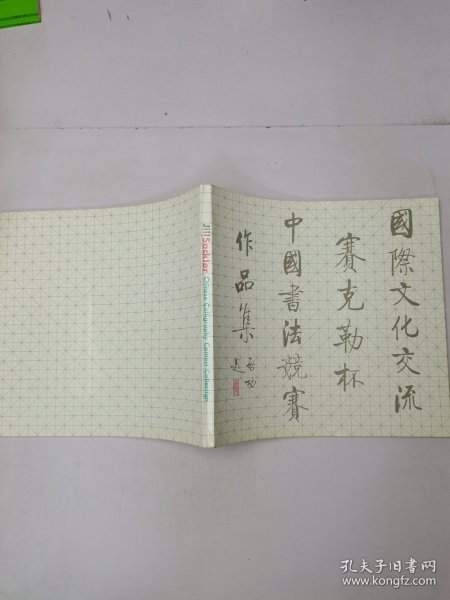 國際文化交流
賽克勒杯
中國書法競賽
作品集
啟功
題
Jill Sackler Chinese Calligraphy Contest Collection
孔夫子旧书网
www.kongfz.com